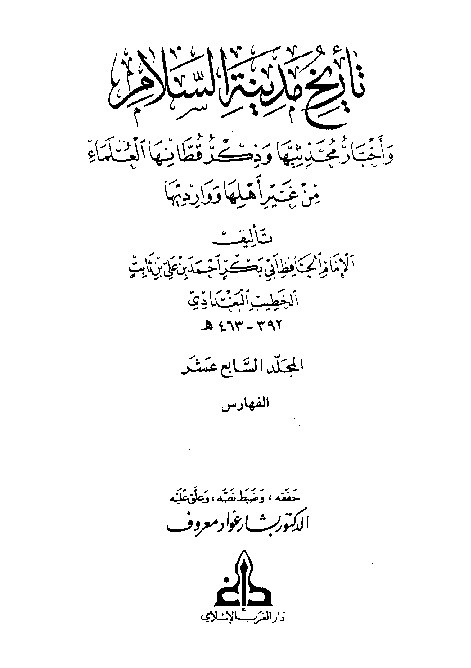 تأريخ مدينة السلام
وأخبار محدثيها وذكر قطانها العلماء
من غير أهلها ووارديها
تأليف
الإمام الحافظ أبي بكر أحمد بن علي بن ثابت
الخطيب البغدادي
٣٩٢ - ٤٦٣ هـ
المجلد السابع عشر
الفهارس
حققه، وضبط نصه، وعلق عليه
الدكتور بشار عواد معروف
دار الغرب الإسلامي